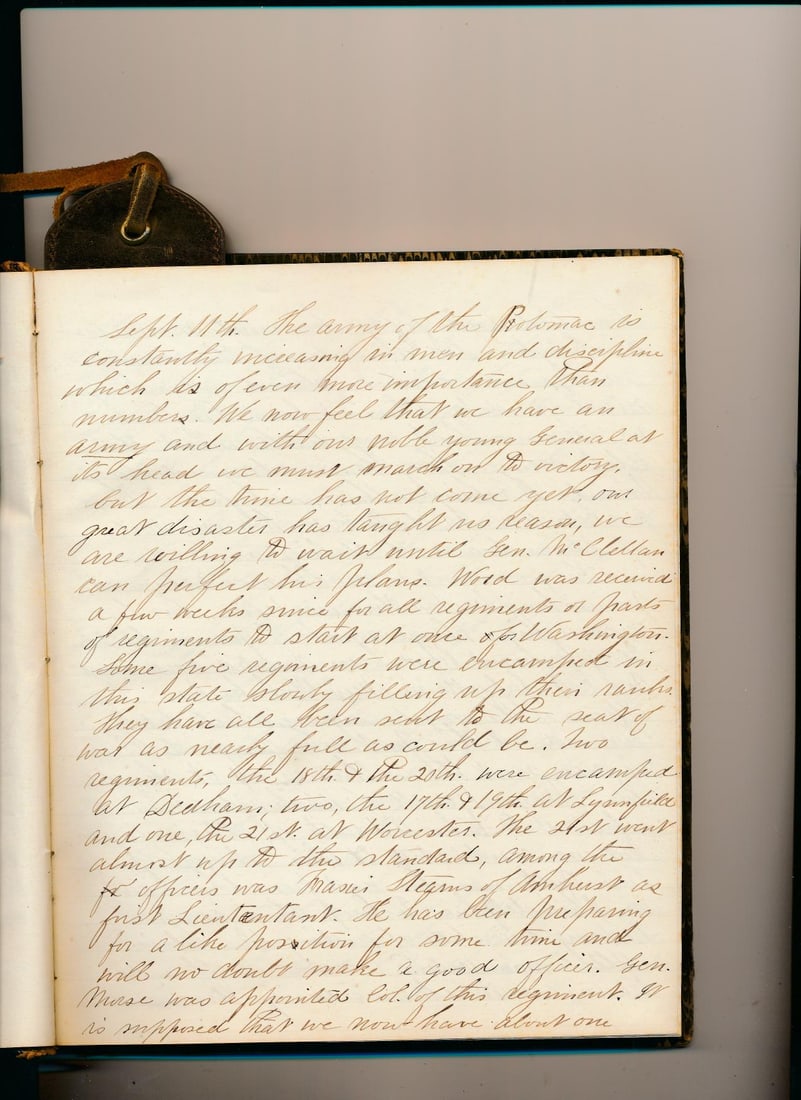 Sept. 11th. The army of the Potomac is
constantly increasing in men and discipline
which is of even more importance than
numbers. We now feel that we have an
army and with our noble young General at
its head we must march on to victory.
but the time has not come yet. our
great disaster has taught us reason, we
are willing to wait until Gen. McClellan
can perfect his plans. Word was received
a few weeks since for all regiments or parts
of regiments to start at once for Washington.
Some five regiments were encamped in
this state slowly filling up their ranks.
They have all been sent to the seat of
war as nearly full as could be. Two
regiments, the 18th & the 20th. were encamped
at Dedham; two, the 17th. & 19th. at Lynnfield
and one, the 21st. at Worcester. The 21st went
almost up to the standard, among the
officers was Frasier Stearns of Amherst as
first Lieutentant. He has been preparing
for a like position for some time and
will no doubt make a good officer. Gen.
Morse was appointed Col. of this regiment. It
is supposed that we now have about one